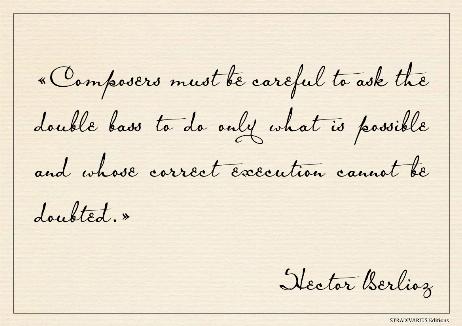 «Composers must be careful to ask the
double bass to do only what is possible
and whose correct execution cannot be
doubted.»
Hector Berlioz
STRADIVARIUS Editions